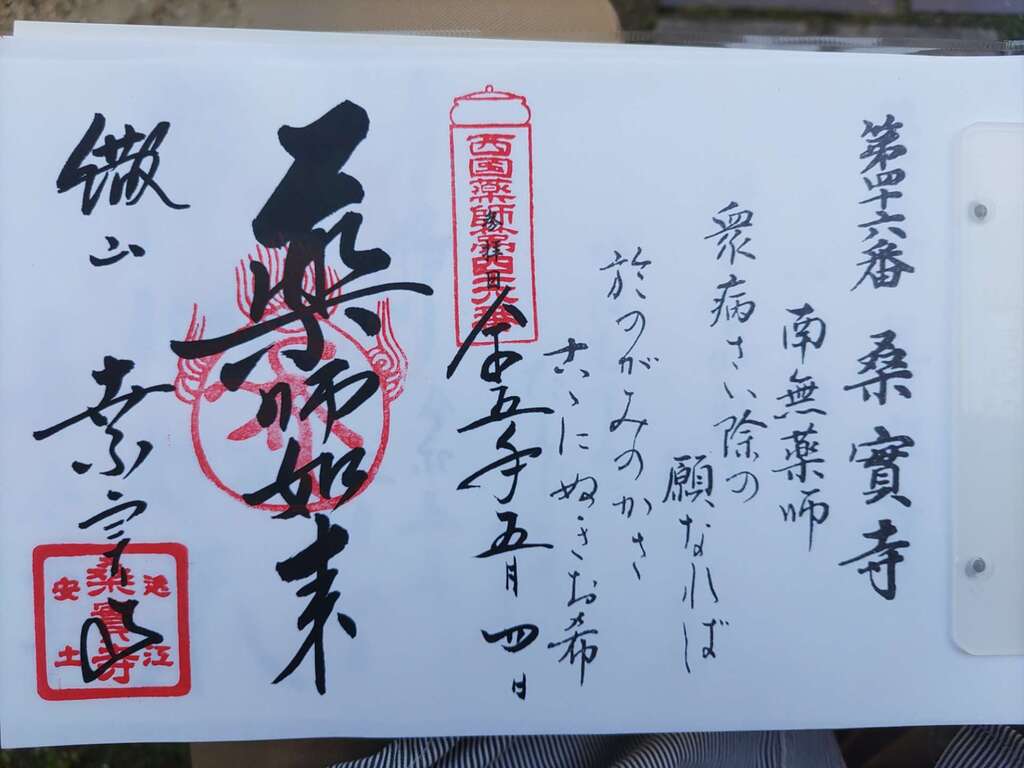 第四十六番 桑實寺
南無薬師
衆病さい除の
願なれば
於のがみのかさ
古ゝにぬきお希
西国薬師第四十六番
参拝日
令五年五月四日
薬師如来
繖山 桑実寺
近江
桑實寺
安土